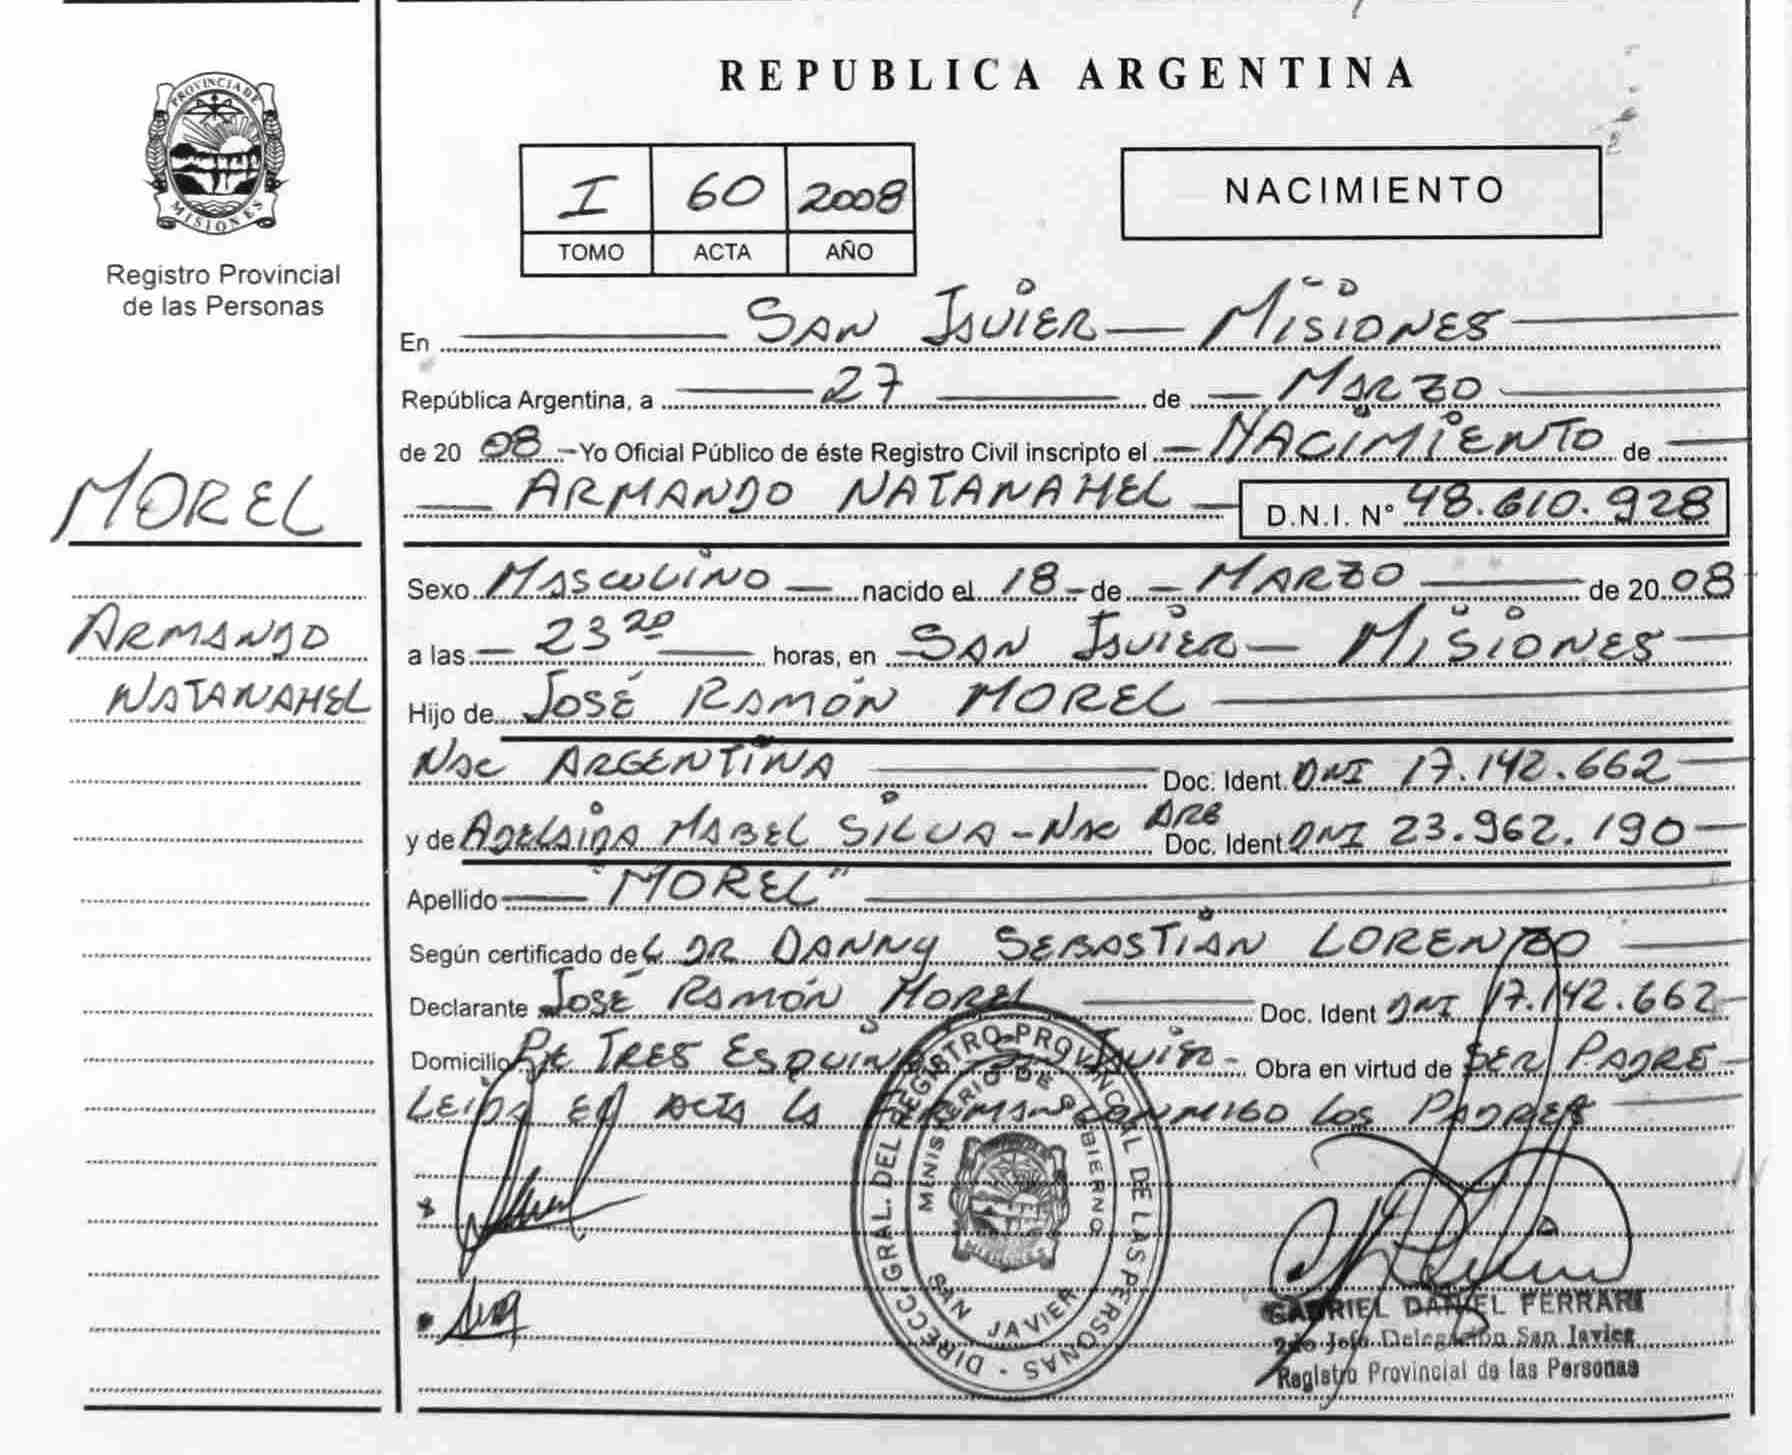 PROVINCIA DE
MISIONES
Registro Provincial
de las Personas
MOREL
ARMANDO
NATANAHEL
REPUBLICA ARGENTINA
I 60 2008
TOMO ACTA AÑO
NACIMIENTO
En SAN JAVIER — MISIONES
República Argentina, a 27 de MARZO
de 20 08 - Yo Oficial Público de éste Registro Civil inscripto el NACIMIENTO de
ARMANDO NATANAHEL D.N.I. N° 48.610.928
Sexo MASCULINO nacido el 18 de MARZO de 20 08
a las 23 20 horas, en SAN JAVIER — MISIONES
Hijo de JOSÉ RAMÓN MOREL
NAC ARGENTINA Doc. Ident. DNI 17.142.662
y de ADELAIDA MABEL SILVA - NAC ARG Doc. Ident. DNI 23.962.190
Apellido "MOREL"
Según certificado del DR DANNY SEBASTIÁN LORENZO
Declarante JOSÉ RAMÓN MOREL Doc. Ident DNI 17.142.662
Domicilio TRES ESQUINAS JAVIER - Obra en virtud de SER PADRE
LEIDA EL ACTA LA FIRMAN CONMIGO LOS PADRES
DIRECC. GRAL. DEL REGISTRO PROVINCIAL DE LAS PERSONAS -
MINISTERIO DE GOBIERNO
MISIONES
SAN JAVIER
GABRIEL DANIEL FERRARI
2do Jefe Delegación San Javier
Registro Provincial de las Personas